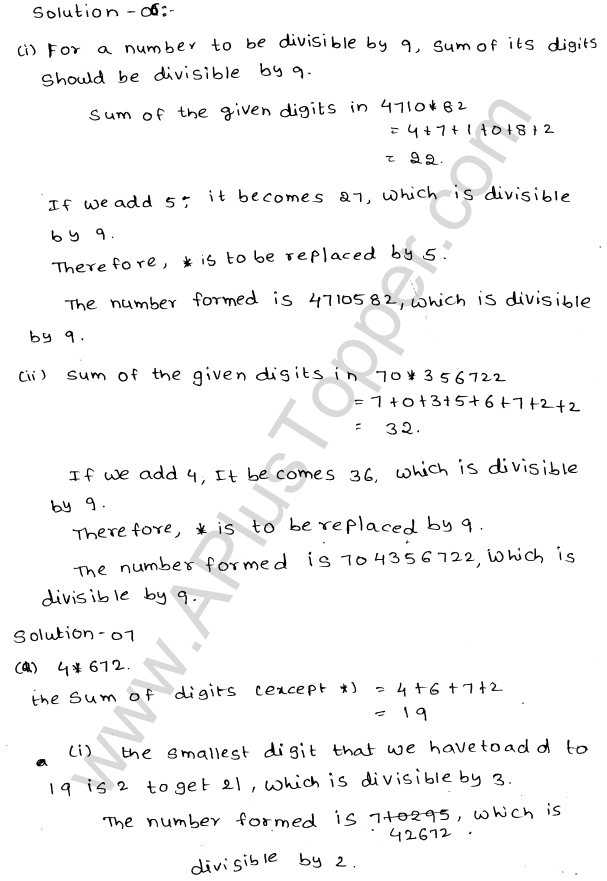 Solution - 06:-
(i) For a number to be divisible by 9, Sum of its digits
should be divisible by 9.
Sum of the given digits in 4710*82
= 4+7+1+0+8+2
= 22.
If we add 5; it becomes 27, which is divisible
by 9.
Therefore, * is to be replaced by 5.
The number formed is 4710582, which is divisible
by 9.
(ii) Sum of the given digits in 70*356722
= 7+0+3+5+6+7+2+2
= 32.
If we add 4, It becomes 36, which is divisible
by 9.
Therefore, * is to be replaced by 9.
The number formed is 704356722, which is
divisible by 9.
Solution - 07
(a) 4*672.
the Sum of digits (except *) = 4+6+7+2
= 19
a (i) the smallest digit that we have to add to
19 is 2 to get 21, which is divisible by 3.
The number formed is 7+0295, which is
42672.
divisible by 2.
www.APlusTopper.com